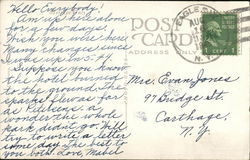 Hello Everybody!
Am up here alone
for a few days.
Wish you were here.
Many changes since
I was up here.
Suppose you know
the hotel burned
to the ground. The
sparks flew as far
as Eilersens. a
wonder the whole
park didnt go. Will
try to write a letter
some day. The best to
you both. Love, Mabel
POST
CARD
ADDRESS ONLY
EAGLE
AU
N.Y.
1 CENT 1
Mrs. Evan Jones
97 Bridge St.
Carthage,
N.Y